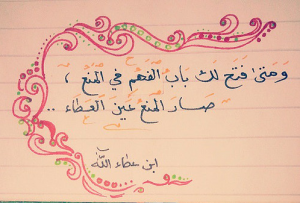 وَمَتَىٰ فَتَحَ لَكَ بَابَ الفَهْمِ فِي المَنْعِ ،
صَارَ المَنْعُ عَيْنَ العَطَاء ..
ابن عطاء الله